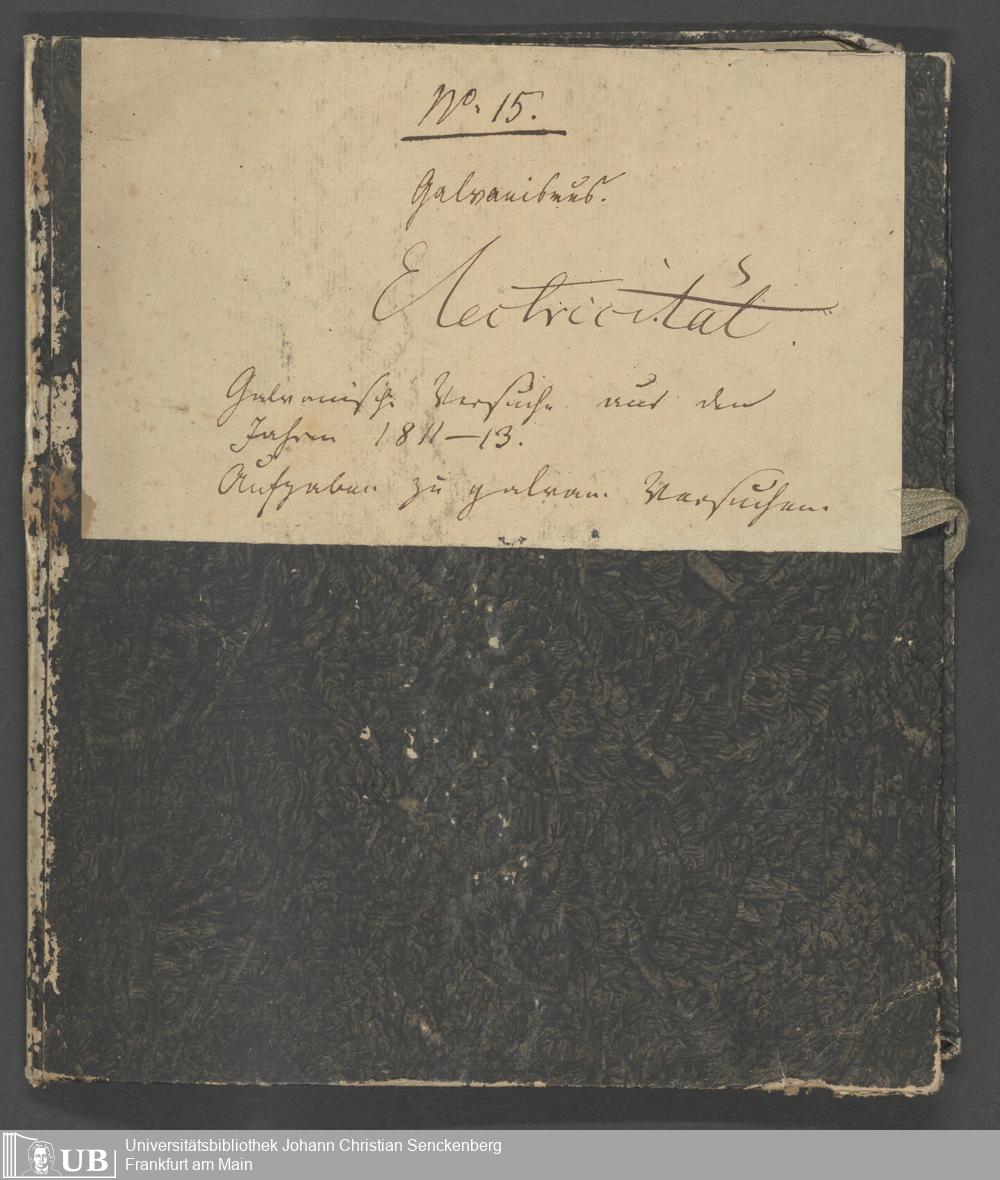 No. 15.
Galvanismus.
Electricität.
Galvanische Versuche aus den
Jahren 1811–13.
Aufgaben zu galvan. Versuchen.
UB
Universitätsbibliothek Johann Christian Senckenberg
Frankfurt am Main